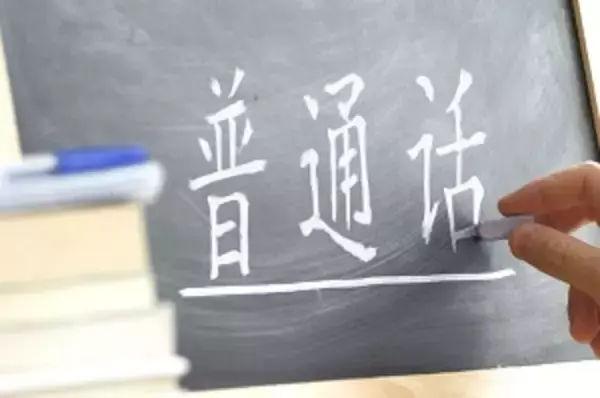 普通话